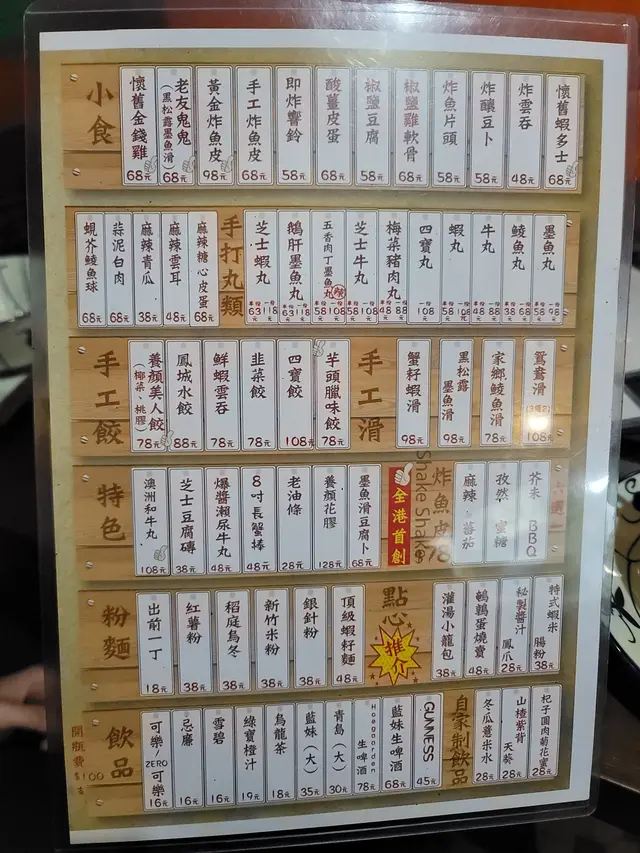 小食
懷舊金錢雞 68元
老友鬼鬼 (黑松露墨魚滑) 68元
黃金炸魚皮 98元
手工炸魚皮 68元
即炸響鈴 58元
酸薑皮蛋 68元
椒鹽豆腐 58元
椒鹽雞軟骨 68元
炸魚片頭 58元
炸釀豆卜 58元
炸雲吞 48元
懷舊蝦多士 68元
蜆芥鯪魚球 68元
蒜泥白肉 68元
麻辣青瓜 38元
麻辣雲耳 48元
麻辣糖心皮蛋 68元
手打丸類
芝士蝦丸 半份63元 一份118元
鵝肝墨魚丸 半份63元 一份118元
五香肉丁墨魚丸 辣 半份58元 一份108元
芝士牛丸 半份58元 一份108元
梅菜豬肉丸 半份48元 一份88元
四寶丸 一份108元
蝦丸 半份58元 一份108元
牛丸 半份48元 一份88元
鯪魚丸 半份38元 一份68元
墨魚丸 半份58元 一份98元
手工餃
養顏美人餃 (椰菜、桃膠) 78元
鳳城水餃 88元
鮮蝦雲吞 78元
韭菜餃 78元
四寶餃 108元
芋頭臘味餃 78元
手工滑
蟹籽蝦滑 98元
黑松露墨魚滑 98元
家鄉鯪魚滑 78元
鴛鴦滑 108元
特色
澳洲和牛丸 108元
芝士豆腐磚 38元
爆醬瀨尿牛丸 48元
8吋長蟹捧 48元
老油條 28元
養顏花膠 128元
墨魚滑豆腐卜 68元
全港首創
Shake Shake
炸魚皮 78
麻辣 蕃茄
孜然 蜜糖
芥末 BBQ
粉麵
出前一丁 18元
紅薯粉 38元
稻庭烏冬 38元
新竹米粉 38元
銀針粉 38元
頂級蝦籽麵 48元
點心
推介
灌湯小籠包 38元
鵪鶉蛋燒賣 48元
秘製醬汁鳳爪 28元
特式蝦米腸粉 38元
開瓶費 $100
飲品
可樂/ZERO可樂 16元
忌廉 16元
雪碧 16元
綠寶橙汁 19元
烏龍茶 18元
藍妹(大) 35元
青島(大) 30元
Hoegaarden生啤酒 78元
藍妹生啤酒 68元
GUNNESS 45元
自家制飲品
冬瓜薏米水 28元
山楂紫背天葵 28元
杞子圓肉菊花蜜 28元